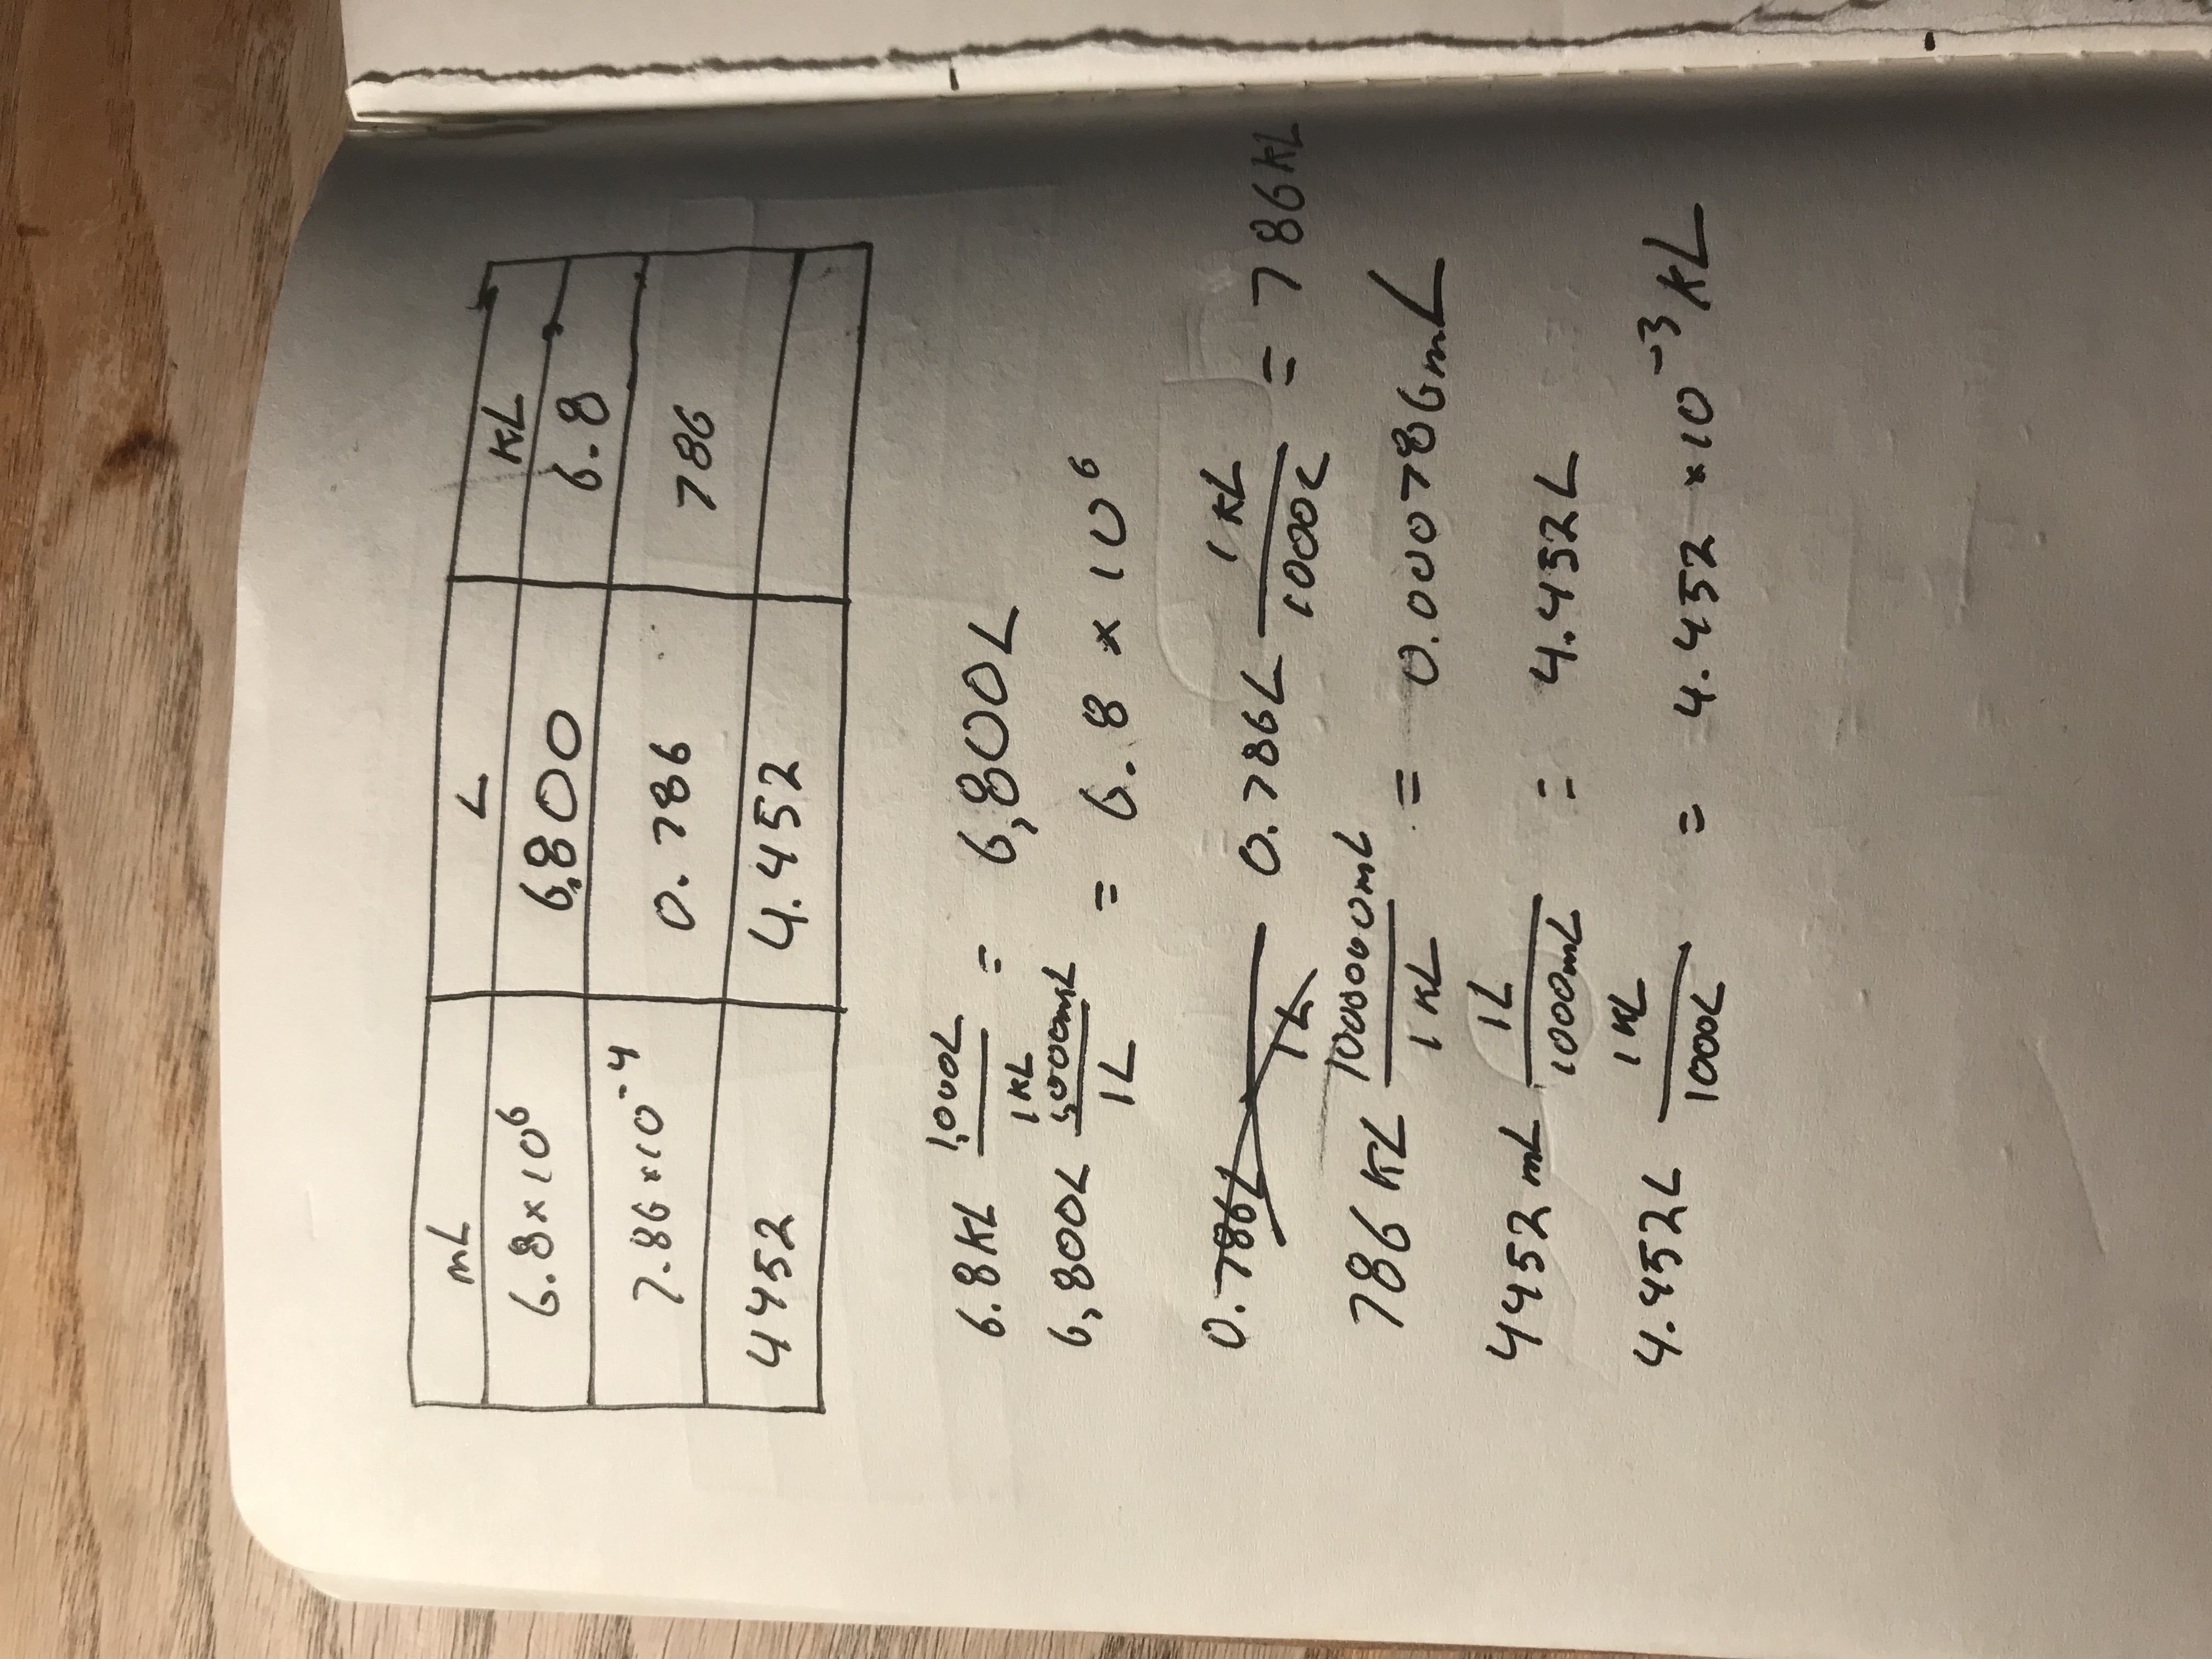 mL L KL
6.8×10⁶ 6,800 6.8
7.86×10⁻⁴ 0.786 786
4452 4.452
6.8KL 1,000L/1KL = 6,800L
6,800L 1,000mL/1L = 6.8 × 10⁶
0.786L /1L 0.786L 1KL/1000L = 786KL
786KL 1000000mL/1KL = 0.000786mL
4452mL 1L/1000mL = 4.452L
4.452L 1KL/1000L = 4.452 ×10⁻³KL